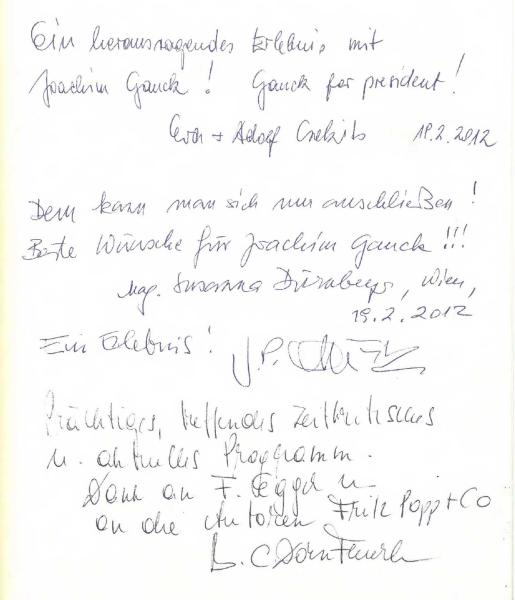 Ein herausragendes Erlebnis mit
Joachim Gauck! Gauck for president!
Eva + Adolf 19.2.2012
Dem kann man sich nur anschließen!
Beste Wünsche für Joachim Gauck!!!
Mag. Susanna Dürnberger, Wien,
19.2.2012
Ein Erlebnis! J.P.
Prächtiges, treffendes zeitkritisches
u. aktuelles Programm.
Dank an F. Egger u.
an die Autoren Fritz Popp + Co